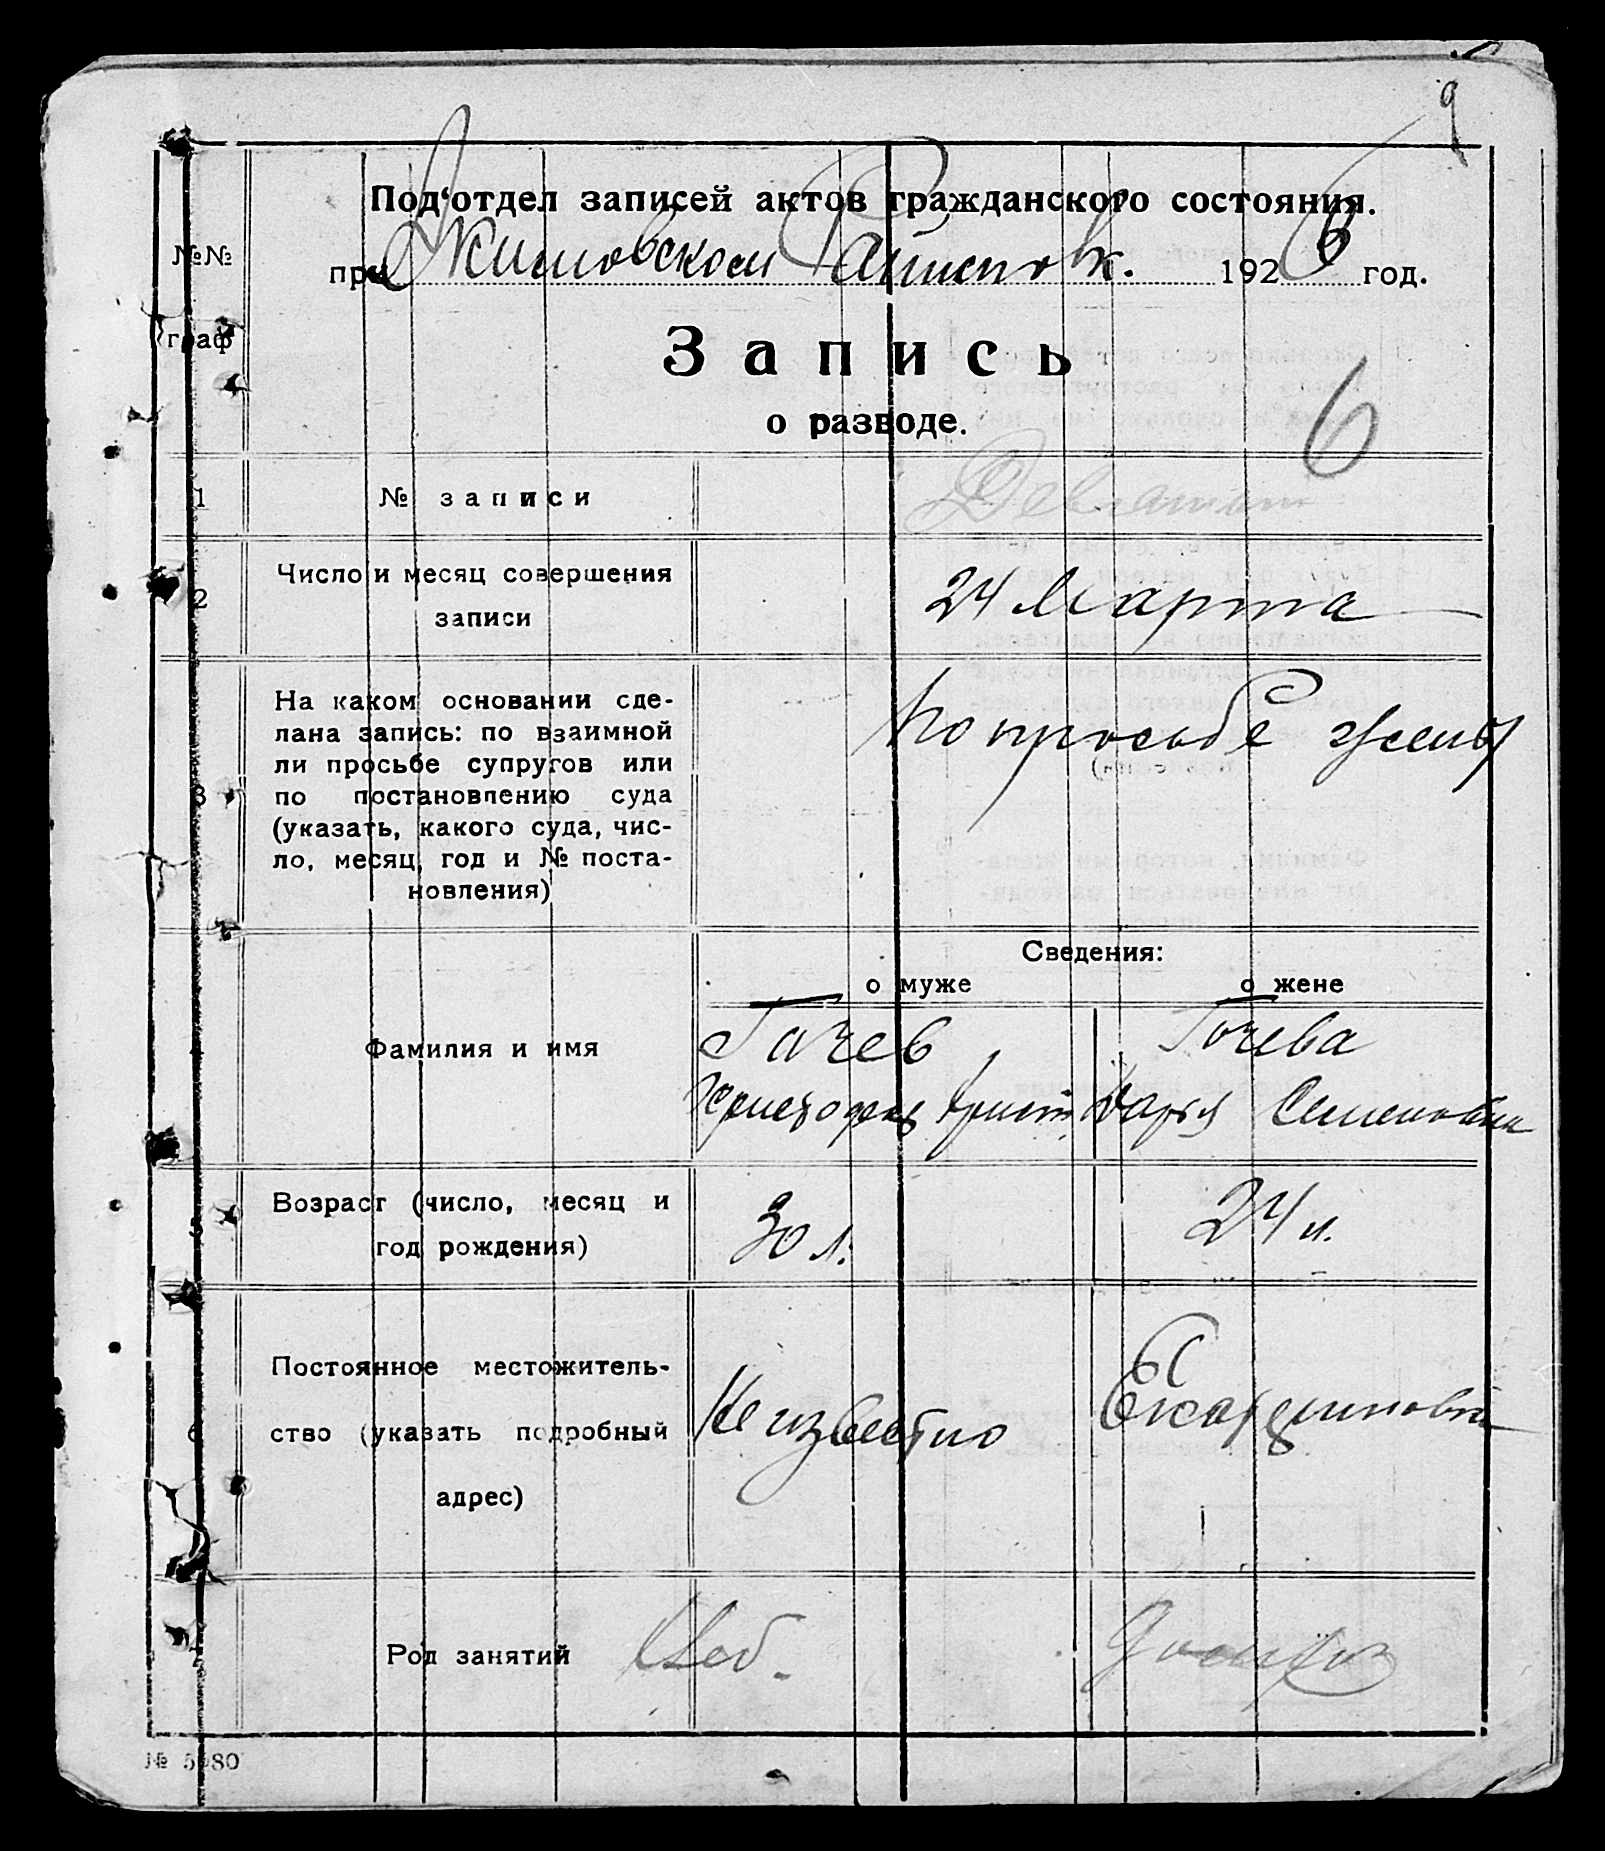 9
Под‘отдел записей актов гражданского состояния.
№№
при Акимовском Райисполк. 1926 год.
граф
Запись
о разводе.
6
1 № записи Девятый
2 Число и месяц совершения 24 Марта
записи
На каком основании сде-
лана запись: по взаимной По просьбе жены
ли просьбе супругов или
3 по постановлению суда
(указать, какого суда, чис-
ло, месяц, год и № поста-
новления)
Сведения:
о муже о жене
Фамилия и имя Гачев Гачева
Христофор Христ. Дарья Семеновна
Возраст (число, месяц и
5 год рождения) 30 л. 24 л.
Постоянное местожитель-
6 ство (указать подробный Неизвестно
адрес)
Род занятий Хлеб.
№ 5080